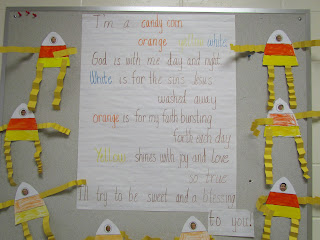 I'm a candy corn
orange yellow white
God is with me day and night
White is for the sins Jesus
washed away
orange is for my faith bursting
forth each day
Yellow shines with joy and love
so true
I'll try to be sweet and a blessing
to you!